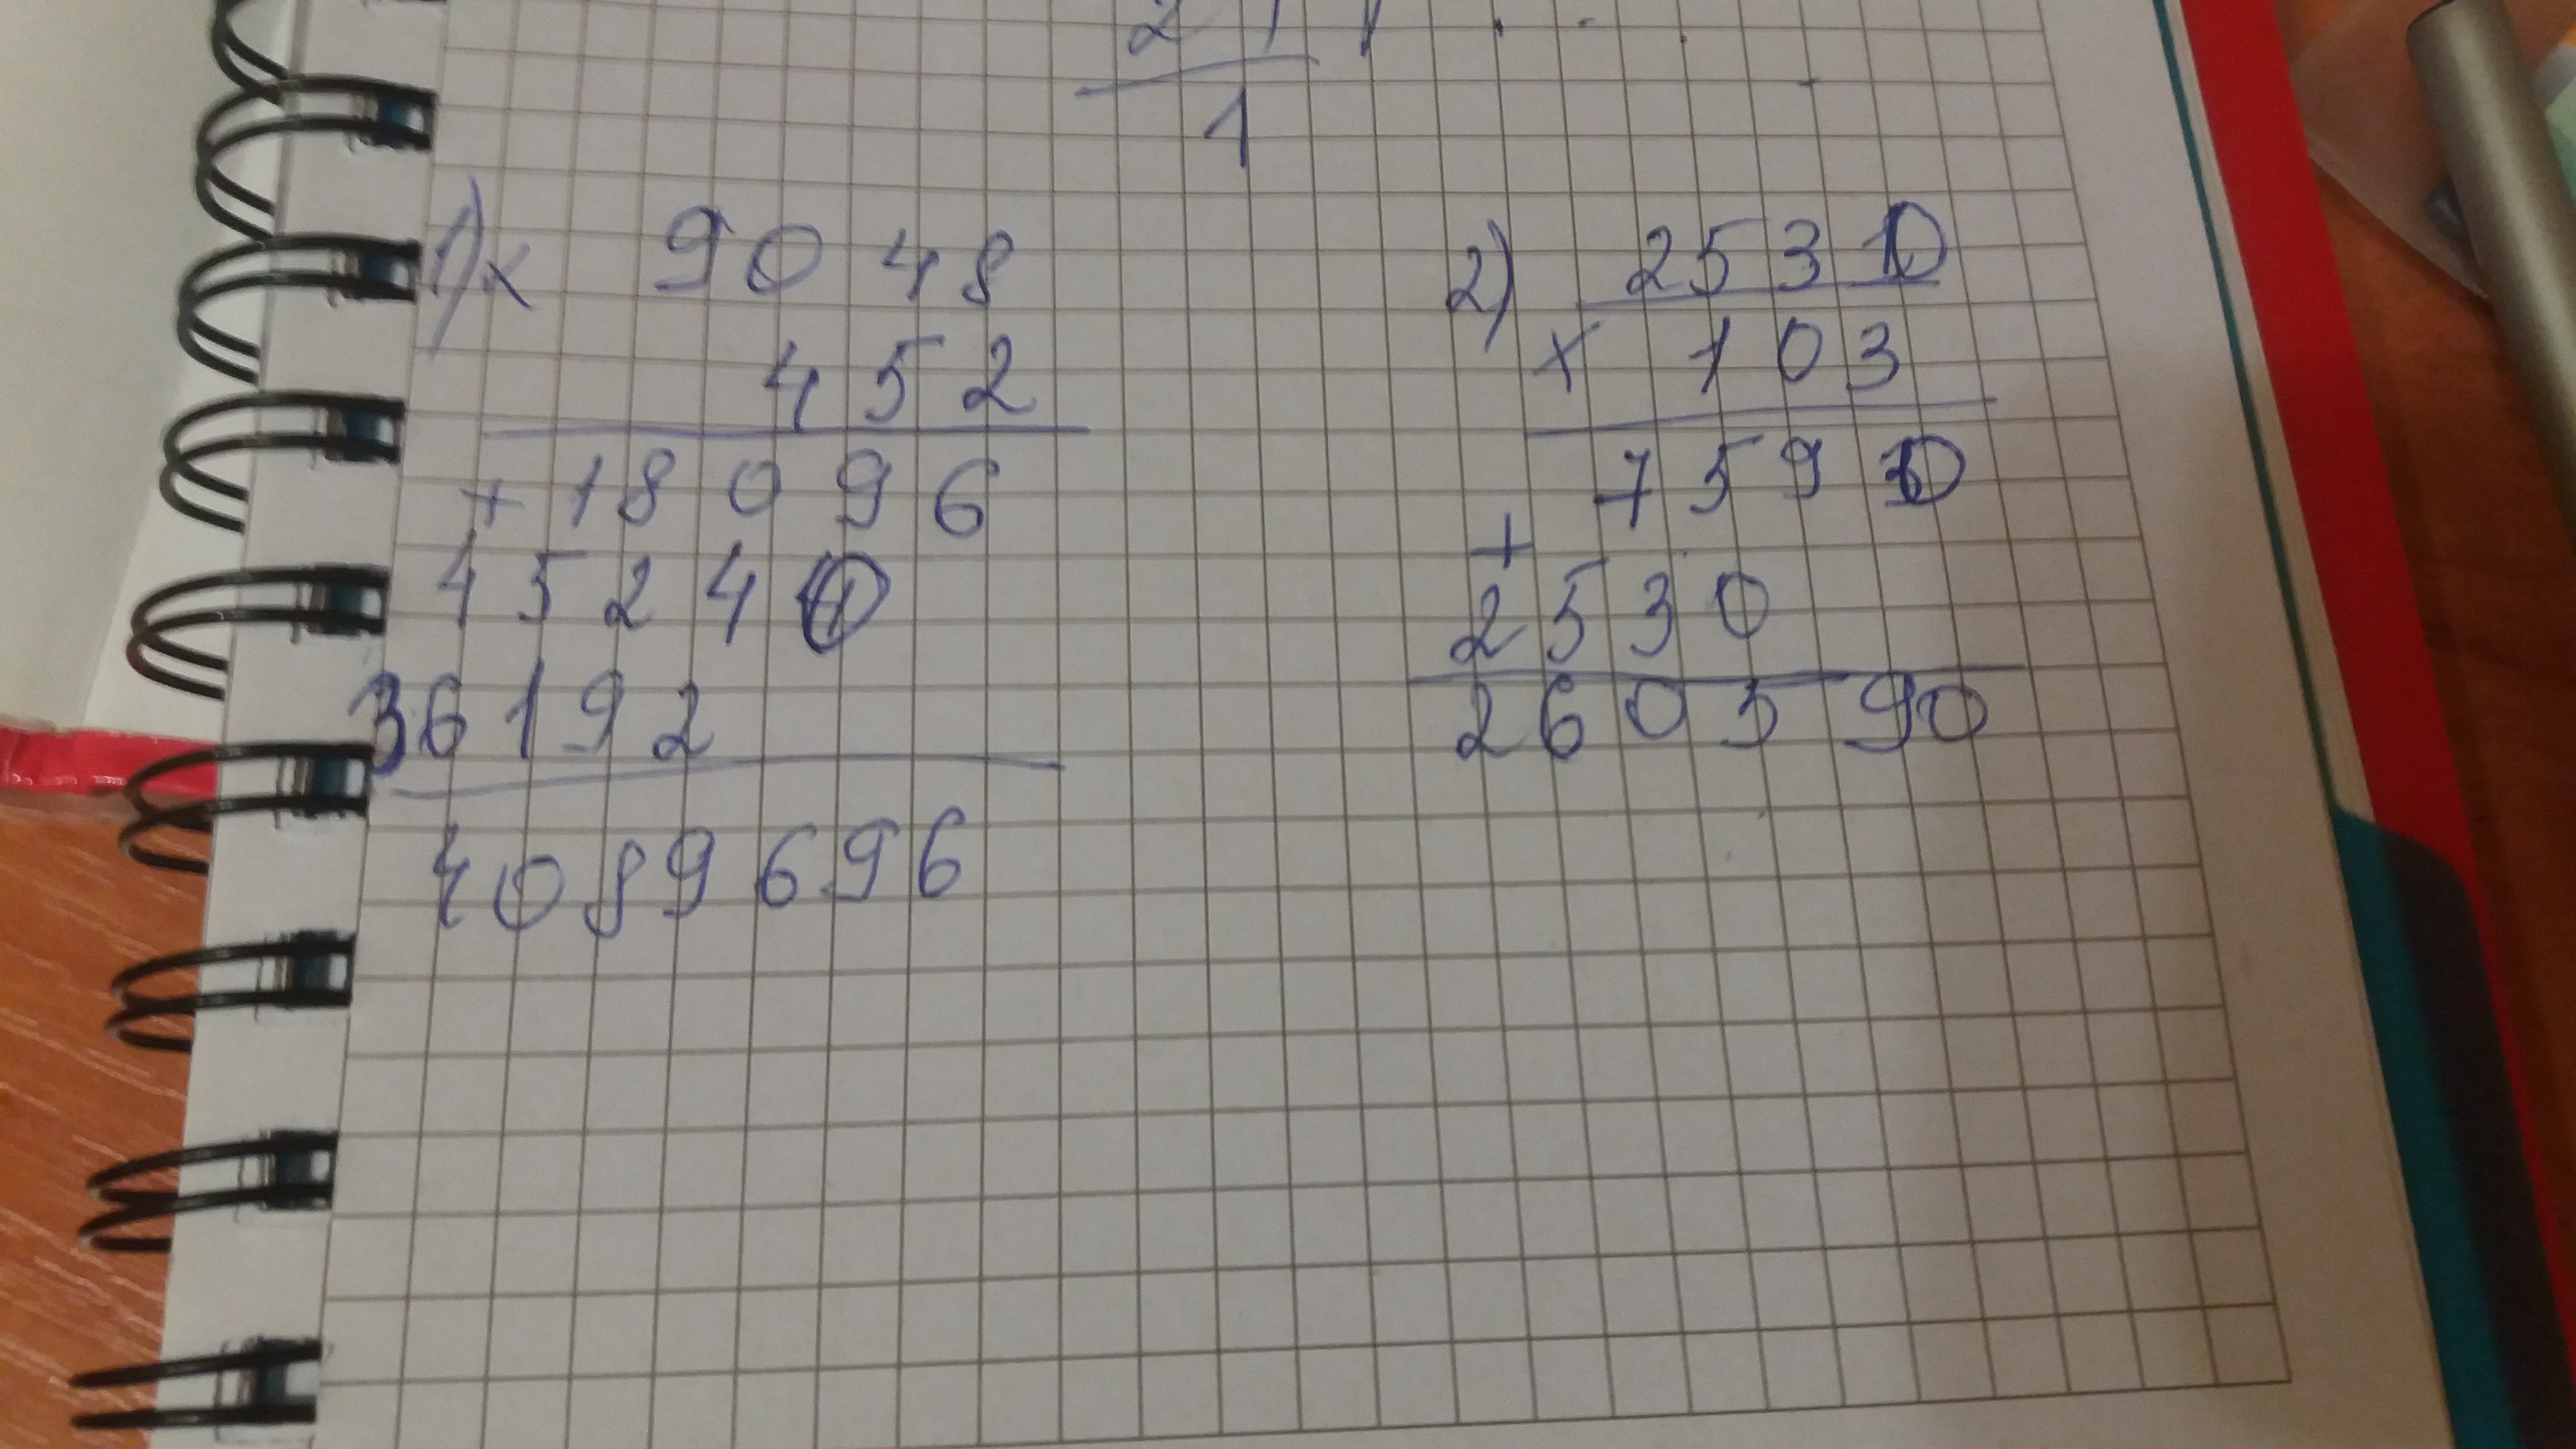 2 1 1
1
1) x 9048
452
+ 18096
45240
36192
4089696
2) 2530
x 103
7590
+
2530
260590